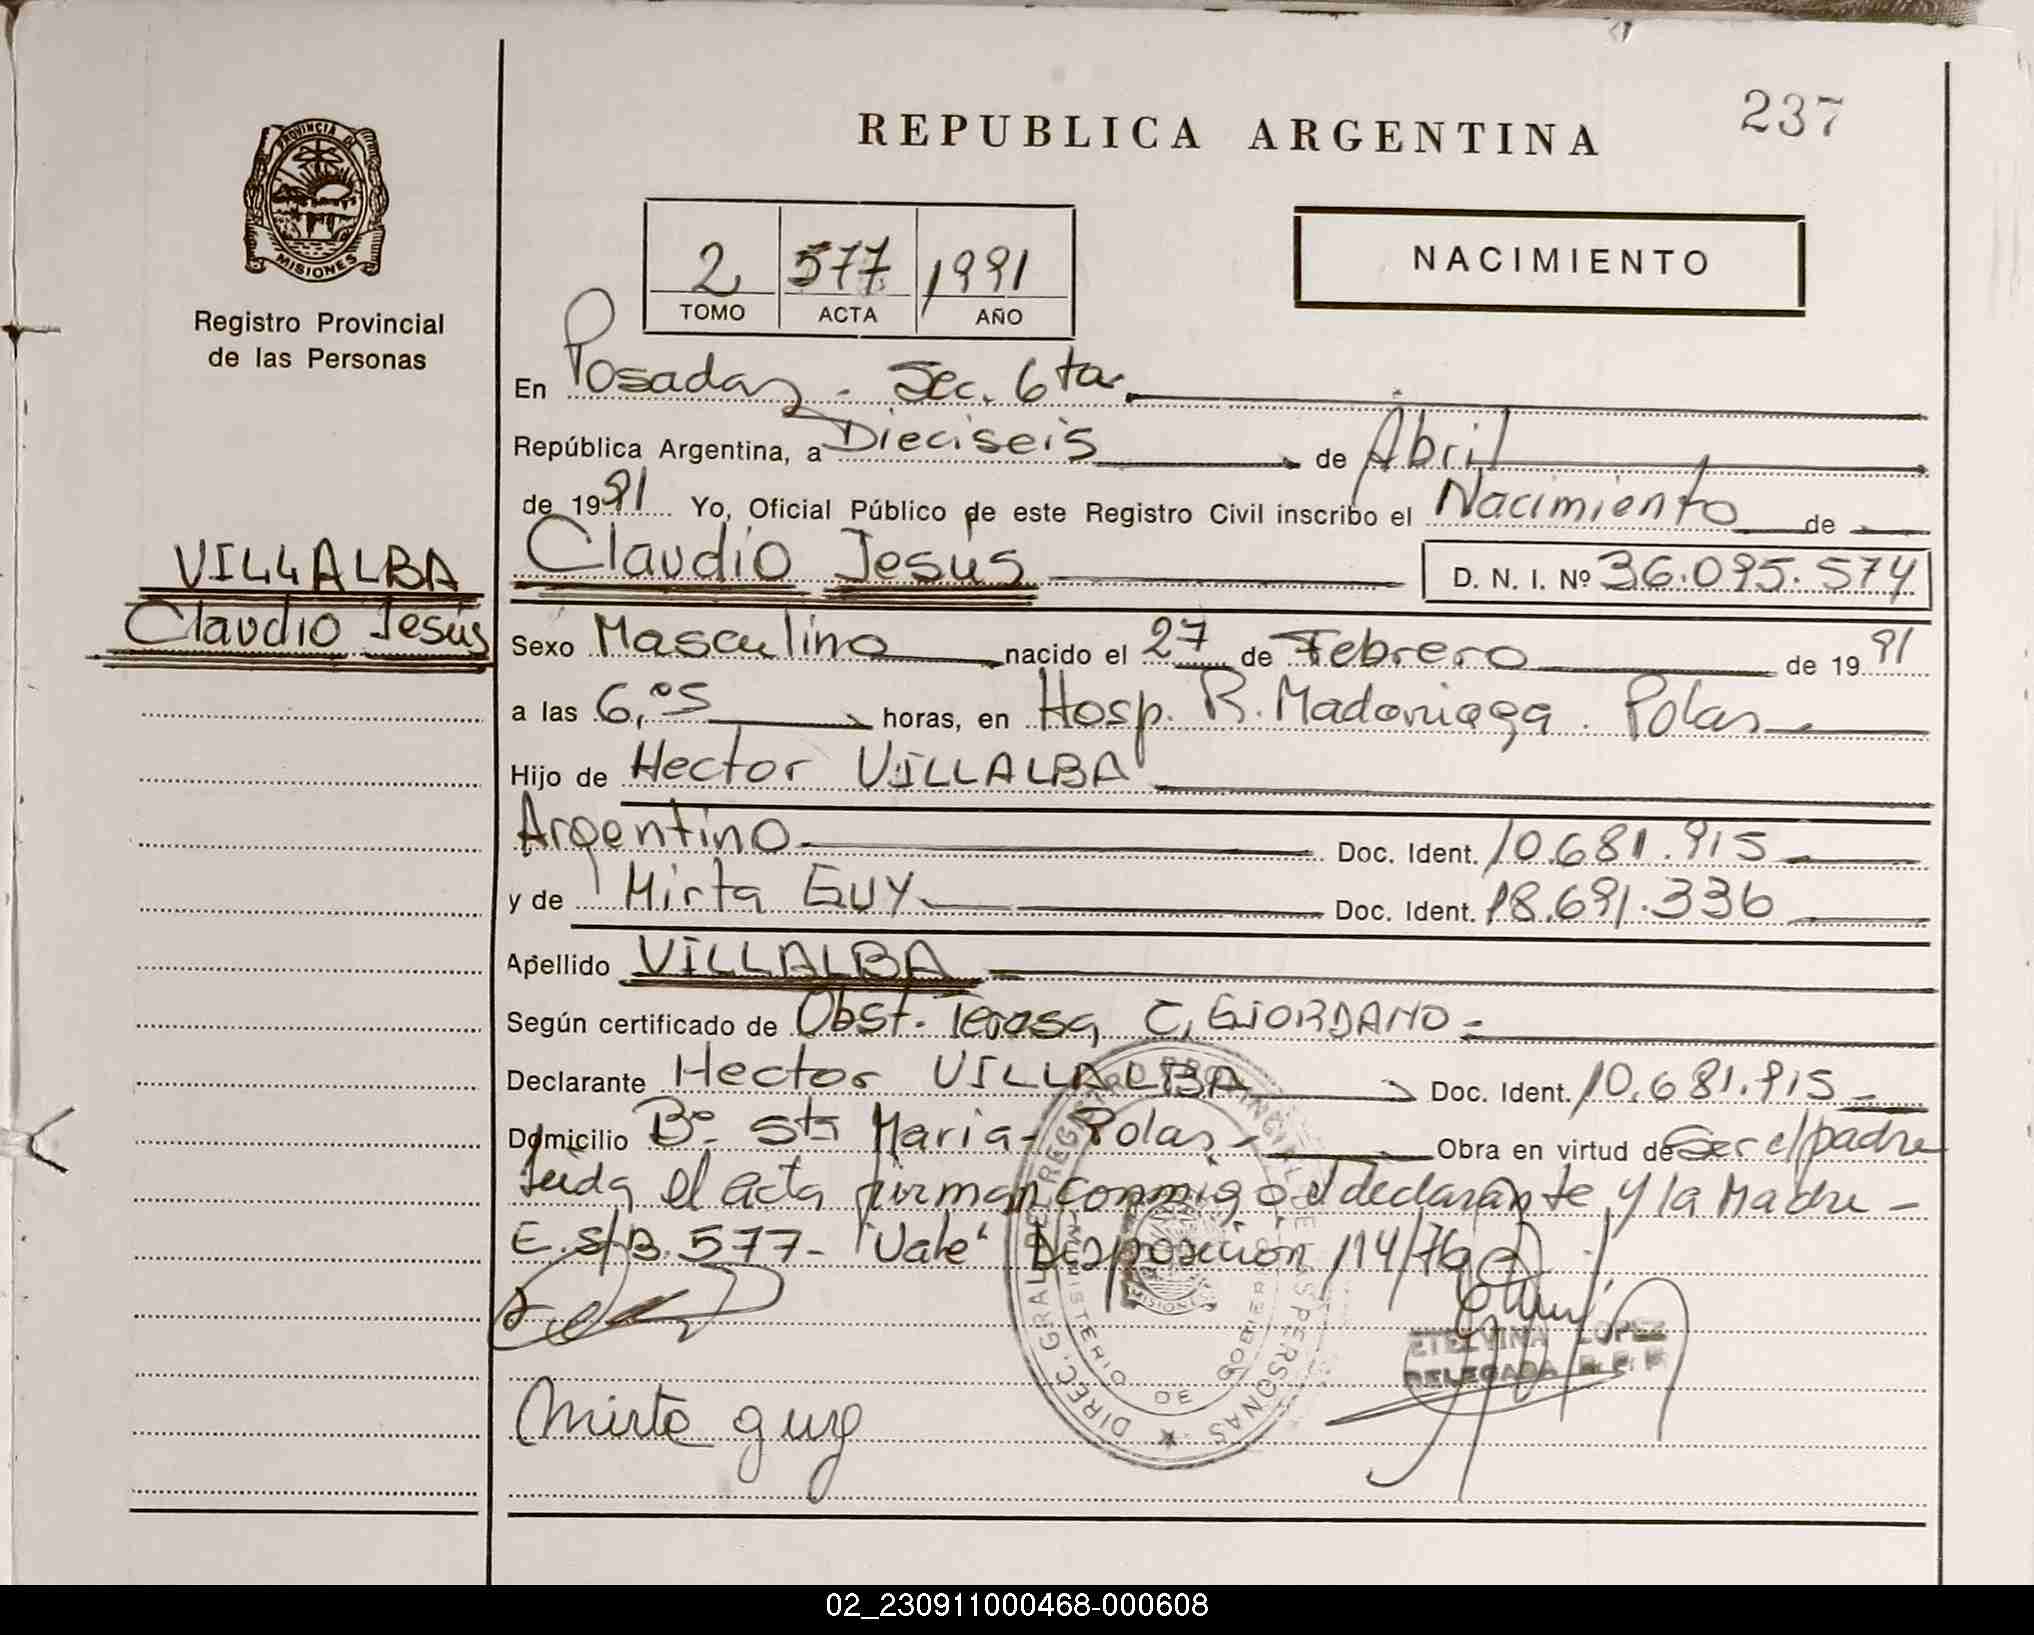 237
REPUBLICA ARGENTINA
PROVINCIA DE
MISIONES
Registro Provincial
de las Personas
2 577 1991
TOMO ACTA AÑO
NACIMIENTO
En Posadas - Sec. 6ta.
República Argentina, a Dieciseis de Abril
de 1991 Yo, Oficial Público de este Registro Civil inscribo el Nacimiento de
VILLALBA
Claudio Jesús
Claudio Jesús D. N. I. Nº 36.095.574
Sexo Masculino nacido el 27 de Febrero de 1991
a las 6,05 horas, en Hosp. R. Madariaga. Pdas
Hijo de Hector VILLALBA
Argentino Doc. Ident. 10.681.915
y de Mirta GUY Doc. Ident. 18.691.336
Apellido VILLALBA
Según certificado de Obst. Teresa C. GIORDANO
Declarante Hector VILLALBA Doc. Ident. 10.681.915
Domicilio Bº Sta Maria - Pdas Obra en virtud de Ser el padre
Leida el acta firman conmigo el declarante y la Madre -
E. S/B. 577 - "Vale" Disposicion 114/76
DIREC. GRAL. DEL REGISTRO PROVINCIAL DE LAS PERSONAS
MINISTERIO DE GOBIERNO
MISIONES
ETELVINA LOPEZ
DELEGADA R.P.P.
Mirta guy
02_230911000468-000608